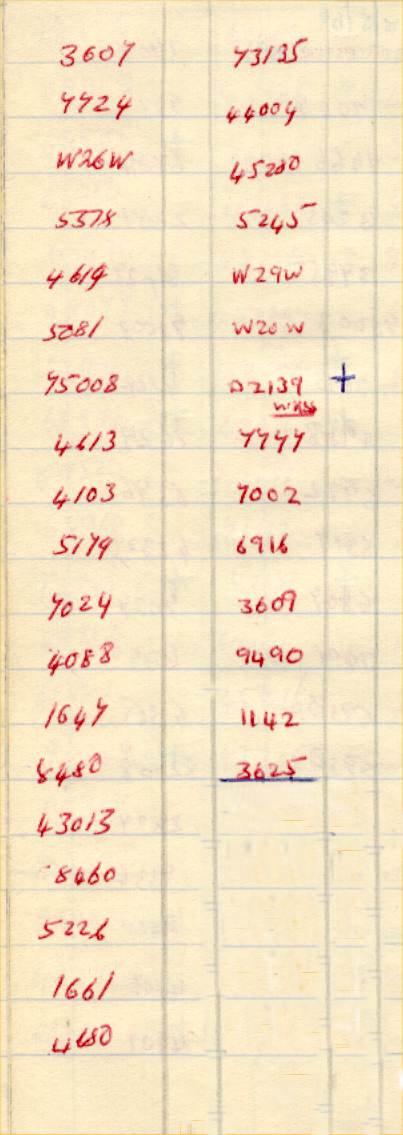 3607
7724
W26W
5378
4619
5081
75008
4613
4103
5179
7024
4088
1647
8480
43013
8460
5226
1661
4680
73135
44004
45280
5245
W29W
W20W
D2139 +
7777
7002
6916
3609
9490
1142
3625